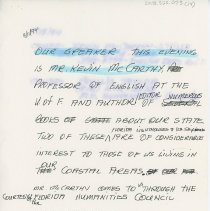 OUR SPEAKER THIS EVENING
IS MR. KEVIN McCARTHY,
PROFESSOR OF ENGLISH AT THE
EDITOR NUMEROUS
U OF F. AND AUTHOR OF
BOOKS ABOUT OUR STATE
TWO OF THESE ARE OF CONSIDERABLE
INTEREST TO THOSE OF US LIVING IN
OUR
COASTAL AREAS.
MR McCARTHY COMES TO THROUGH THE
COURTESY FLORIDA HUMANITIES COUNCIL